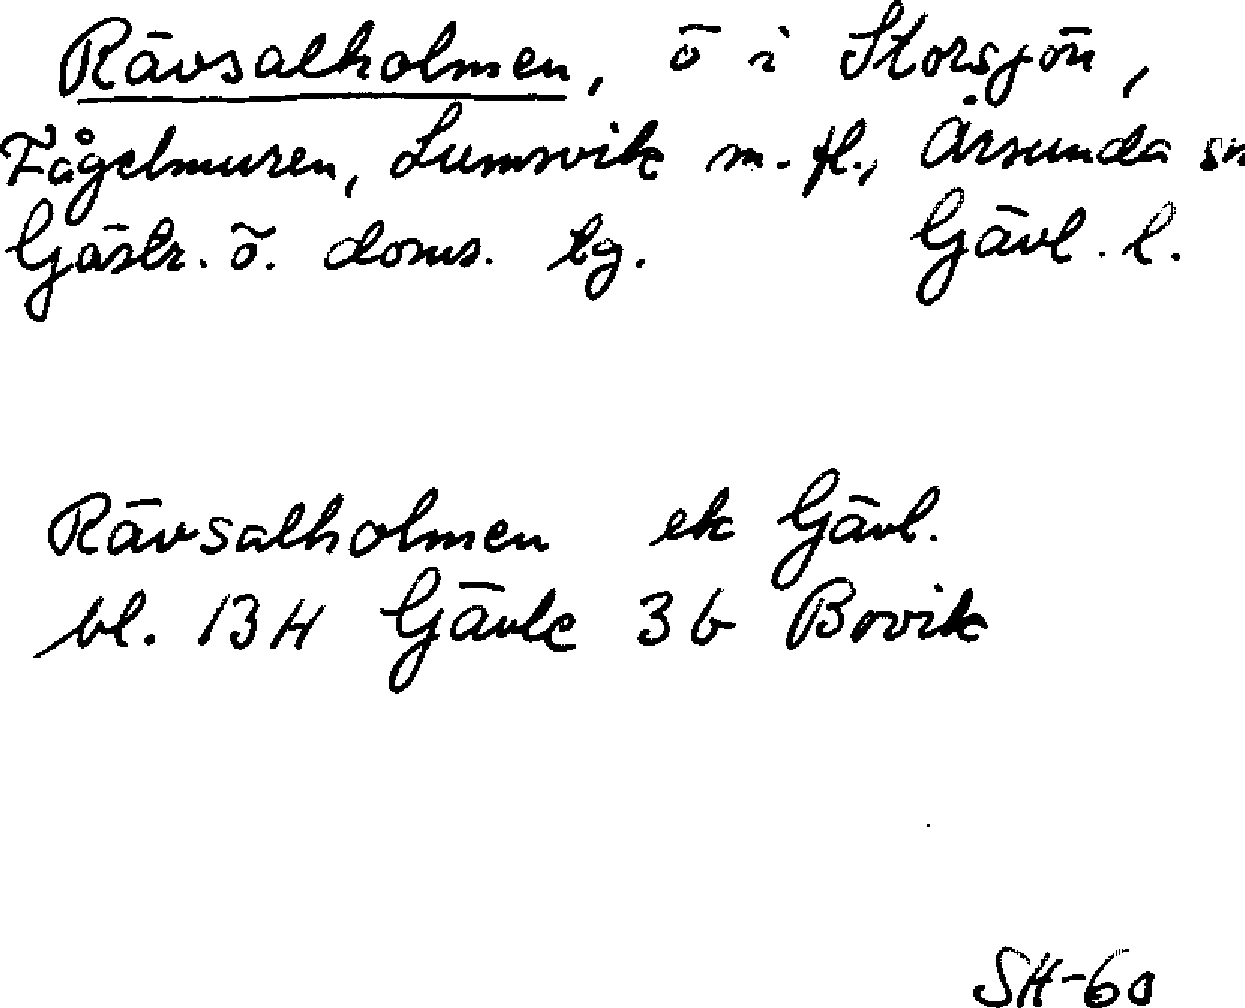 Rävsalholmen, ö i Storsjön,
Fågelmuren, Lumsvik m. fl., Årsunda sn
Gästr. ö. doms. tg. Gävl. l.
Rävsalholmen ek Gävl.
bl. 13H Gävle 3b Bovik
SH-60